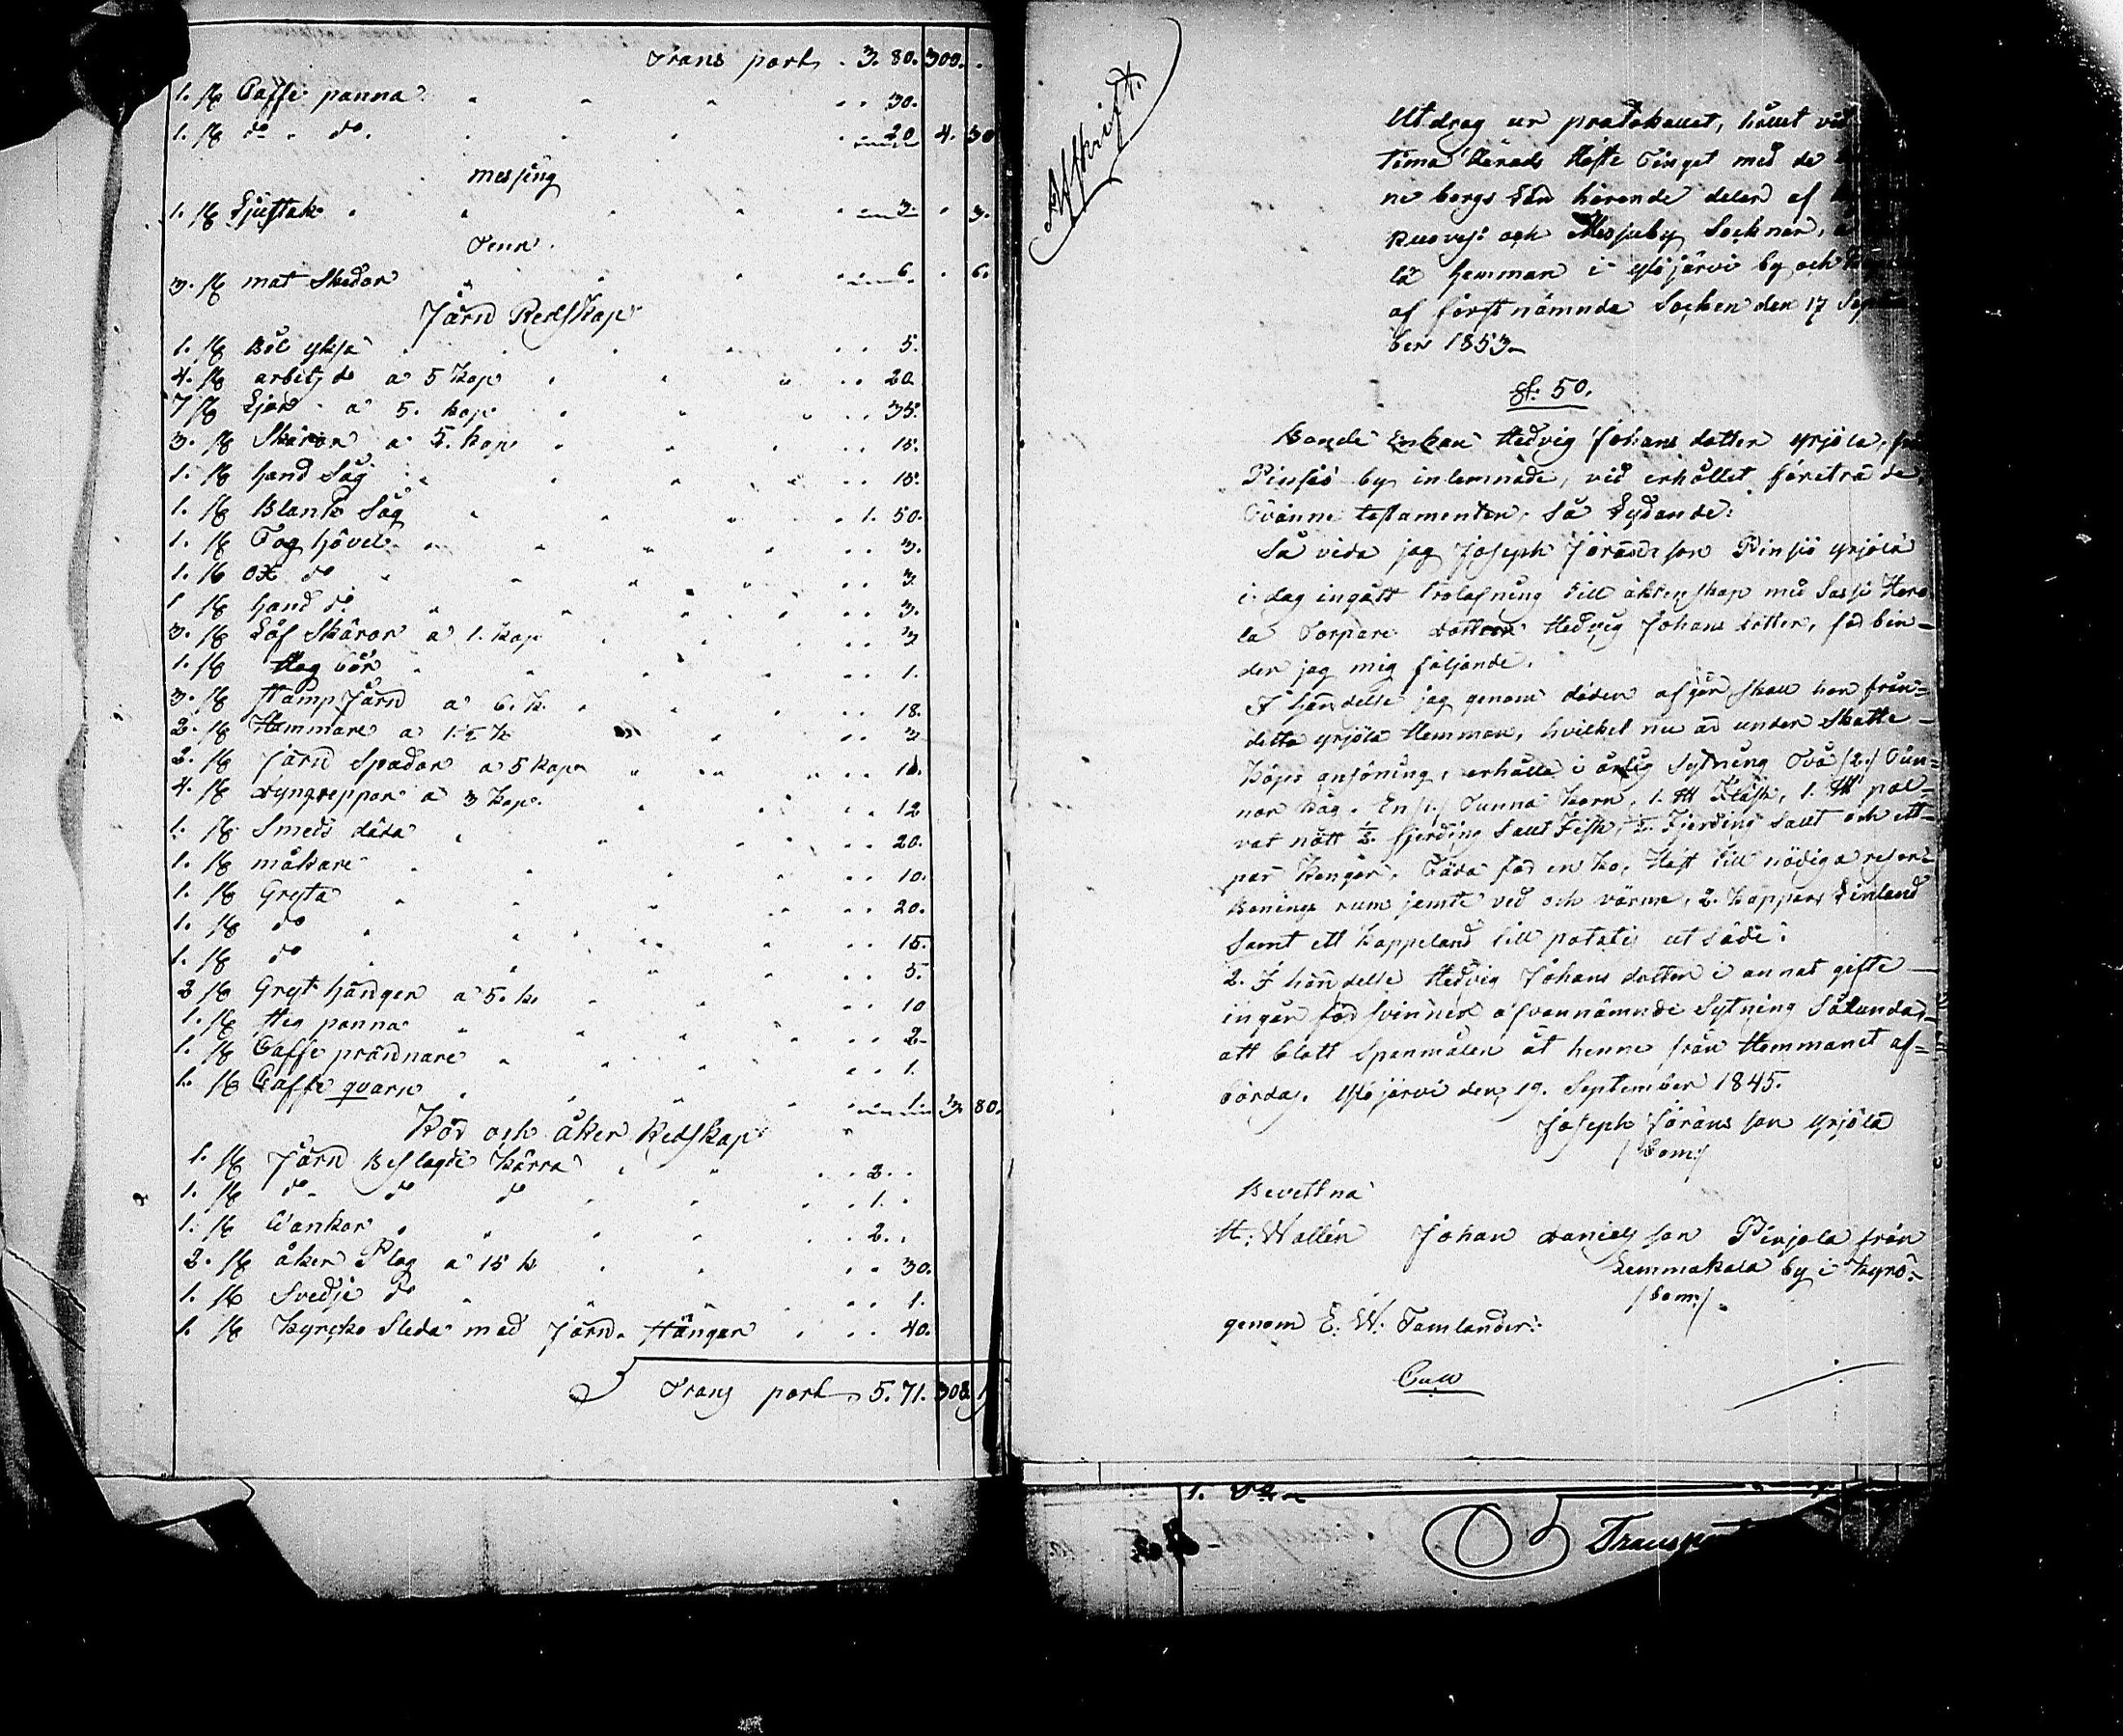 Transport . 3. 80. 300. .
1. st Caffe panna . . . 30.
1. st do . do. . . . 20 4. 30
messing
1. st Ljustak . . . 3. . 3.
Tenn.
3. st mat Skedar . . . 6. . 6.
Järn Redskap
1. st Bål ykse . . . 5.
4. st arbetz do a 5 kop . . . 20
7 st Ljor a 5. kop . . . 35.
3. st Skäror a 5. kop . . . 15.
1. st hand Såg . . . 15.
1. st Blank Såg . . . 1. 50.
1. st Tog hövel . . . 3.
1. st ox do . . . 3.
1 st hand do . . . 3.
3. st Löf Skäror a 1. kop . . . 3
1. st Hag bår . . . 1.
3. st Stamp Järn a 6. k. . . . 18.
2. st Hammare a 1 ½ k . . . 3
2. st Järn Spador a 5 kop . . . 10.
4. st dyngreppor a 3 kop. . . . 12
1. st Smeds . . . 20.
1. st måkare . . . 10.
1. st Gryta . . . 20.
1. st do . . . 15.
1. st do . . . 5.
2 st Gryt hänger a 5. k. . . . 10
1. st panna . . . 2
1. st Caffe prännare . . . 1.
1. st Caffe qvarn . . . 1. 3. 80.
Kör och åker Redskap
1. st Järn Beslagde kärra . . . 2. .
1. st do do do . . . 1. .
1. st Wankor . . . 2. .
2. st åker Plog a 15 k . . . 30.
1. st Svedje do . . . 1.
1. st kyrcko Släda med Järn Hänger . . . 40.
Transport 5. 71. 308.
Afskrift.
Utdrag ur protokollet, hållet vid
tima Härads Höste Tinget med de
ne borgs Län hörande delar af
Ruovesi och Messuby Socknar,
lä Hemman i Ylöjärvi by och
af förstnämnde Socken den 17 Septem
ber 1853.
§. 50.
Bonde Enkan Hedvig Johans dotter Yrjölä, från
Pinsiö by inlemnade, vid erhållet företräde,
tvänne testamenter, så Lydande:
Så vida jag Joseph Jöransson Pinsiö Yrjölä
i dag ingått trolofning till äktenskap med Sassi Hero
la Torpare dotter Hedvig Johans dotter, förbin-
der jag mig följande.
I händelse jag genom döden afgår skall hon från=
detta Yrjölä Hemman, hvilket nu är under Skatte-
köps ansöning, erhålla i årlig Sytning Två /2./ Tun=
nor Råg. En /1./ Tunna korn, 1. LM Fläsk, 1. LM pal-
vat nött ½. fjerding Salt Fisk, ½. Fjerding Salt och ett
par Kängor, Föda för en ko, Häst till nödiga resor
Bonings rum jemte ved och värme, 2. kappars Linland
samt ett kappeland till potatis utsäde.
2. I händelse Hedvig Johans dotter i annat gifte
ingår försvinner ofvannämnde Sytning Sålunda,
att blott Spanmålen åt henne från Hemmanet af=
bördas. Ylöjärvi den 19. September 1845.
Joseph Jöransson Yrjölä
/bom:/
Bevittna
H: Wallén Johan Danielsson Pirjola från
Lemmakala by i kyrö.
/bom:/
genom E. W. Tamlander:
Cuw
1. do
Transport